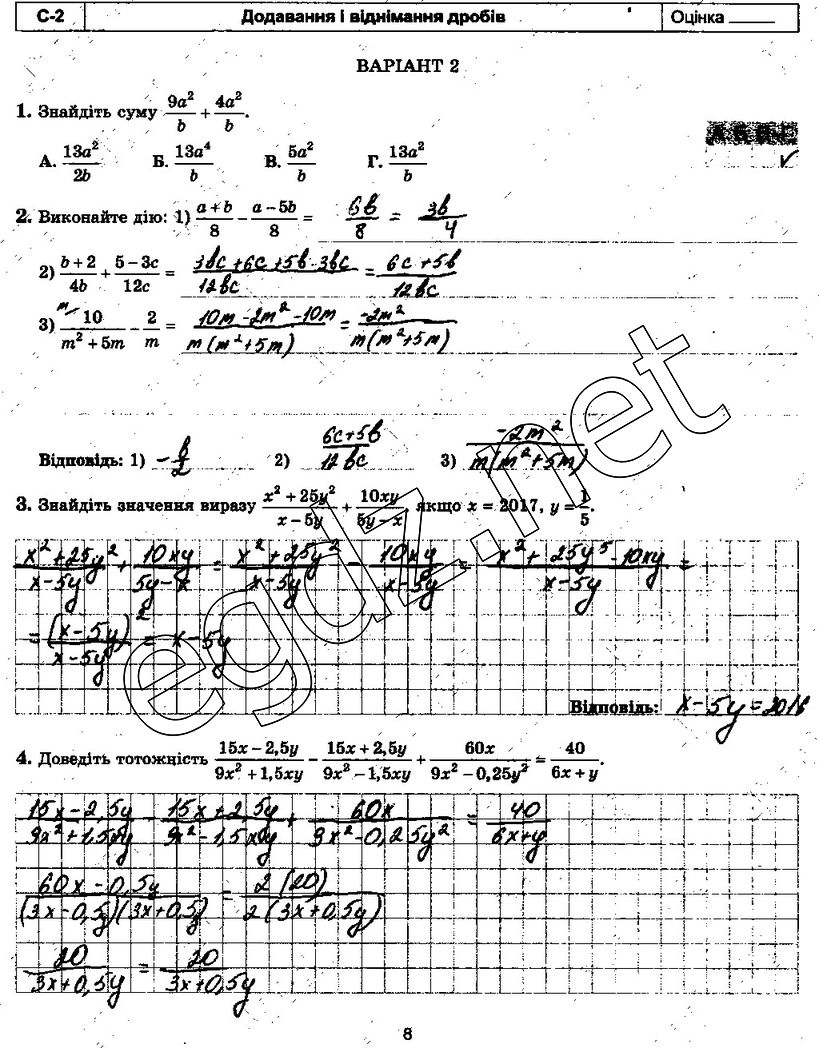 С-2 Додавання і віднімання дробів Оцінка ____
ВАРІАНТ 2
1. Знайдіть суму 9a²/b + 4a²/b.
А Б В Г
А. 13a²/2b Б. 13a⁴/b В. 5a²/b Г. 13a²/b ✓
2. Виконайте дію: 1) (a + b)/8 − (a − 5b)/8 = 6b/8 = 3b/4
2) (b + 2)/4b + (5 − 3c)/12c = (3bc + 6c + 5b - 3bc)/12bc = (6c + 5b)/12bc
3) m 10/(m² + 5m) − 2/m = (10m - 2m² - 10m)/(m(m² + 5m)) = -2m²/(m(m² + 5m))
Відповідь: 1) -b/2 2) (6c + 5b)/12bc 3) -2m²/(m(m² + 5m))
3. Знайдіть значення виразу (x² + 25y²)/(x − 5y) + 10xy/(5y − x), якщо x = 2017, y = 1/5.
(x² + 25y²)/(x - 5y) + 10xy/(5y - x) = (x² + 25y²)/(x - 5y) - 10xy/(x - 5y) = (x² + 25y⁵ - 10xy)/(x - 5y) =
= (x - 5y)²/(x - 5y) = x - 5y
Відповідь: x - 5y = 2016
4. Доведіть тотожність (15x − 2,5y)/(9x² + 1,5xy) − (15x + 2,5y)/(9x² − 1,5xy) + 60x/(9x² − 0,25y²) = 40/(6x + y).
(15x - 2,5y)/(9x² + 1,5xy) - (15x + 2,5y)/(9x² - 1,5xy) + 60x/(9x² - 0,25y²) = 40/(6x + y)
(60x - 0,5y)/((3x - 0,5y)(3x + 0,5y)) = 2(20)/(2(3x + 0,5y))
20/(3x + 0,5y) = 20/(3x + 0,5y)
8
egdz.net